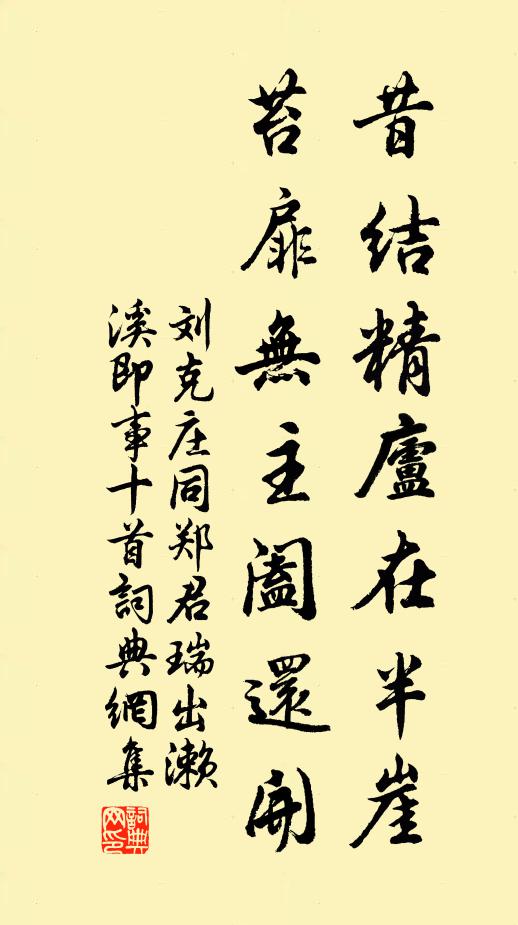 昔结精廬在半崖
苔扉無主阖還開
刘克庄同郑君瑞出濑
溪即事十首詞典網集
詞典网印